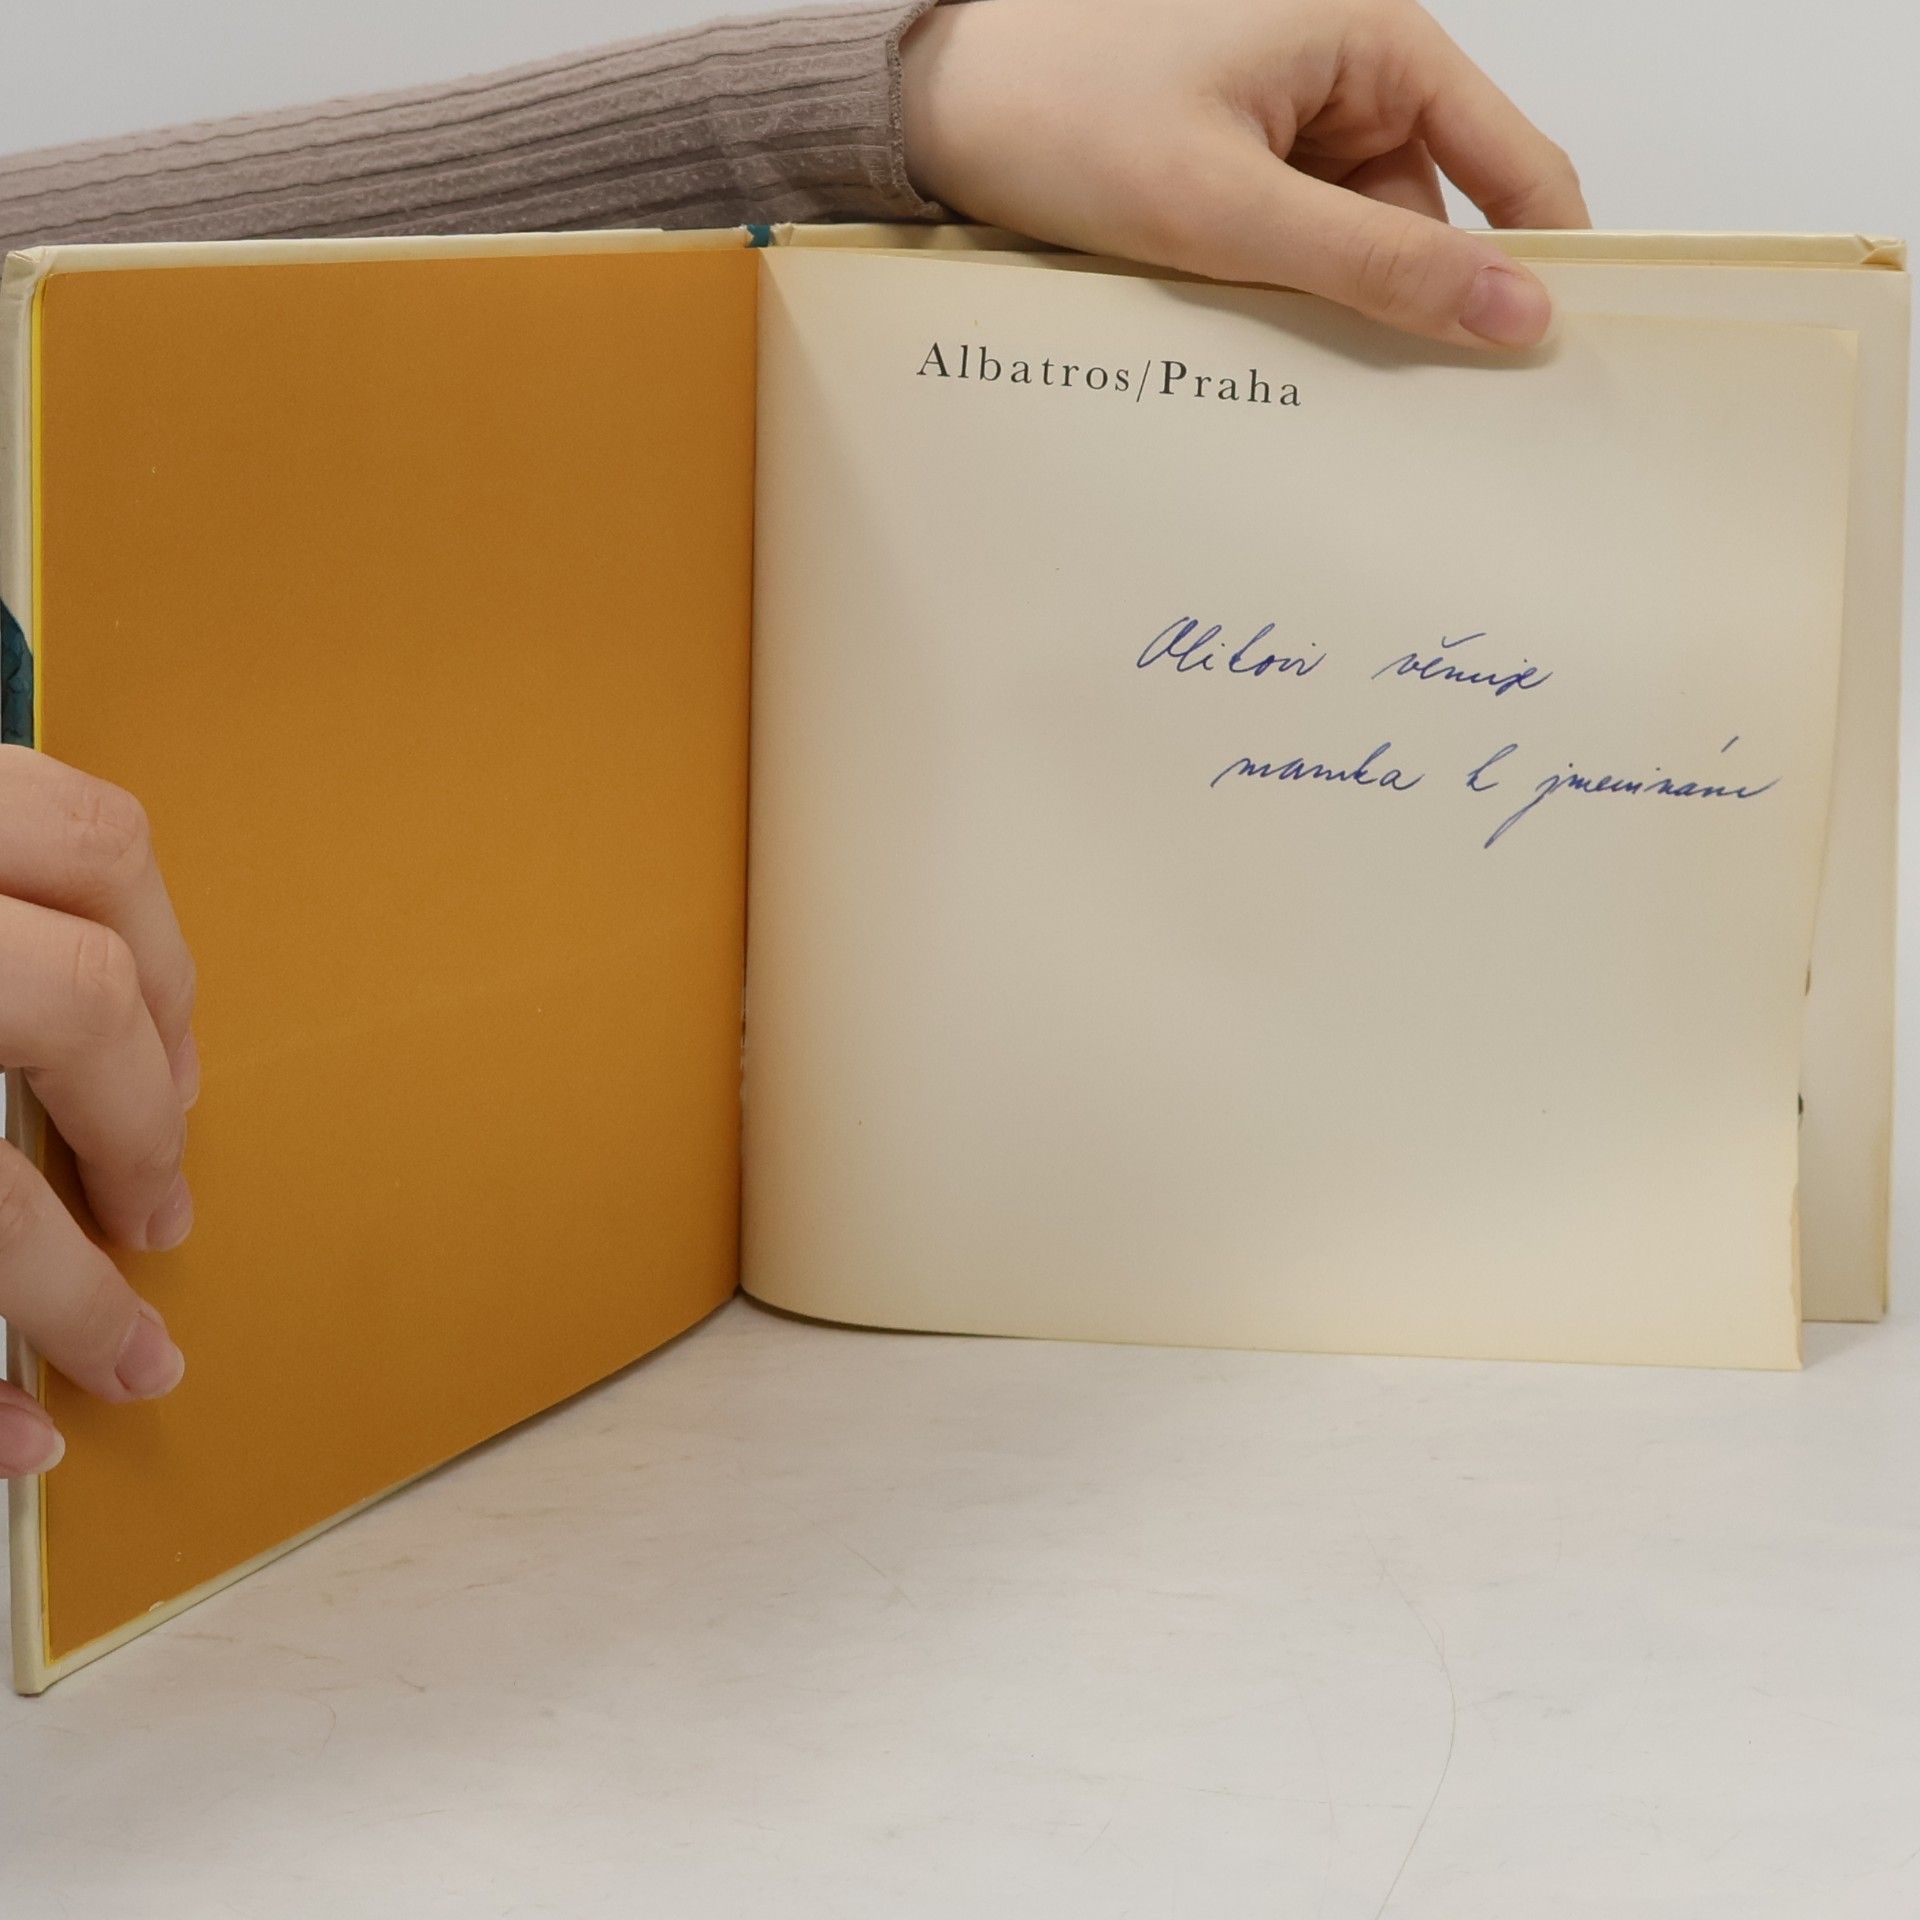 Albatros/Praha
Olitovi věnuje
mamka k jmeninám